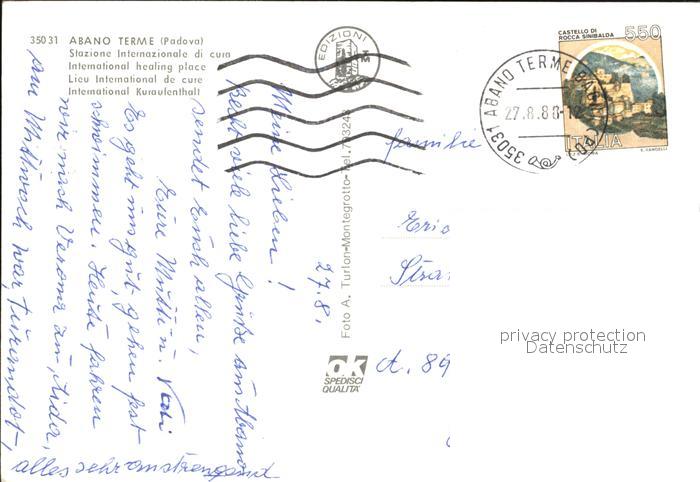 35031 ABANO TERME (Padova)
Stazione Internazionale di cura
International healing place
Lieu International de cure
International Kuraufenthalt
EDIZIONI
Foto A. Turlon-Montegrotto-Tel. 793243
OK
SPEDISCI
QUALITA'
CASTELLO DI
ROCCA SINIBALDA
550
ITALIA
35031 ABANO TERME
27.8.88
27.8.
Meine Lieben!
Recht viele liebe Grüße aus Abano
sendet Euch allen,
Eure Mutti u.
Es geht uns gut, gehen fest
schwimmen. Heute fahren
wir nach Verona zu, Aida,
am Mittwoch war Turandot,
alles sehr anstrengend
familie
Eric
Stra
A. 89
privacy protection
Datenschutz